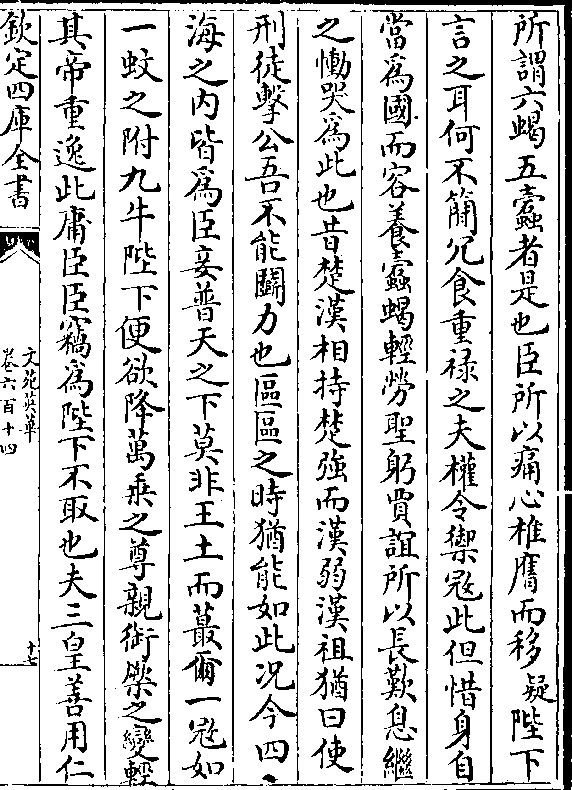 所謂六蝎五蠹者是也臣所以痛心椎膺而移疑陛下
言之耳何不簡冗食重禄之夫權令禦㓂此但惜身自
當為國而容養蠹蝎輕勞聖躬賈誼所以長歎息繼
之慟哭為此也昔楚漢相持楚強而漢弱漢祖猶曰使
刑徒擊公吾不能鬭力也區區之時猶能如此况今四
海之内皆為臣妾普天之下莫非王土而蕞爾一㓂如
一蚊之附九牛陛下便欲降萬乘之尊親銜橜之變輕
其帝重逸此庸臣臣竊為陛下不取也夫三皇善用仁
欽定四庫全書
文苑英華
卷六百十四
十七